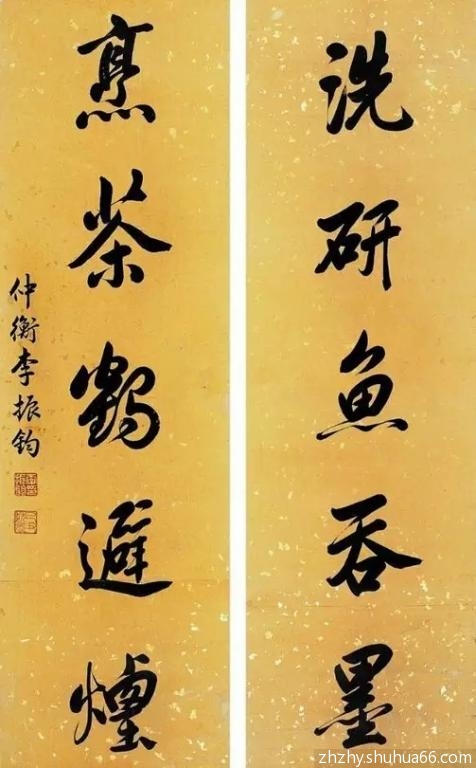 洗研魚吞墨
烹茶鶴避煙
仲衡李振鈞
zhzhy.shuhua66.com